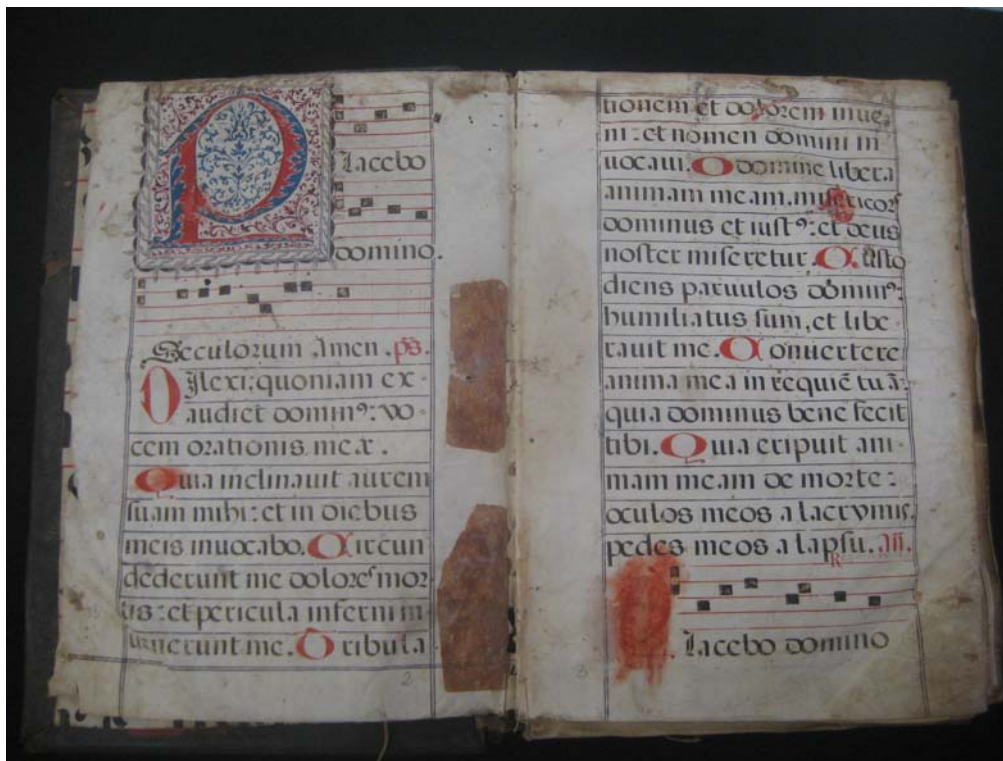 Placebo
domino.
Seculorum Amen. ps.
Dilexi, quoniam ex-
audiet dominꝰ: vo-
cem orationis meæ.
Quia inclinauit aurem
suam mihi: et in diebus
meis inuocabo. Circun
dederunt me dolores mor
tis: et pericula inferni in
uenerunt me. Tribula
2
tionem et dolorem inue
ni: et nomen domini in
uocaui. O domine libera
animam meam. misericors
dominus et iustꝰ: et deus
noster miseretur. Custo
diens paruulos dominꝰ:
humiliatus sum, et libe-
rauit me. Conuertere
anima mea in requiē tuā:
quia dominus bene fecit
tibi. Quia eripuit ani-
mam meam de morte:
oculos meos a lacrymis,
pedes meos a lapsu. añ.
Placebo domino
3